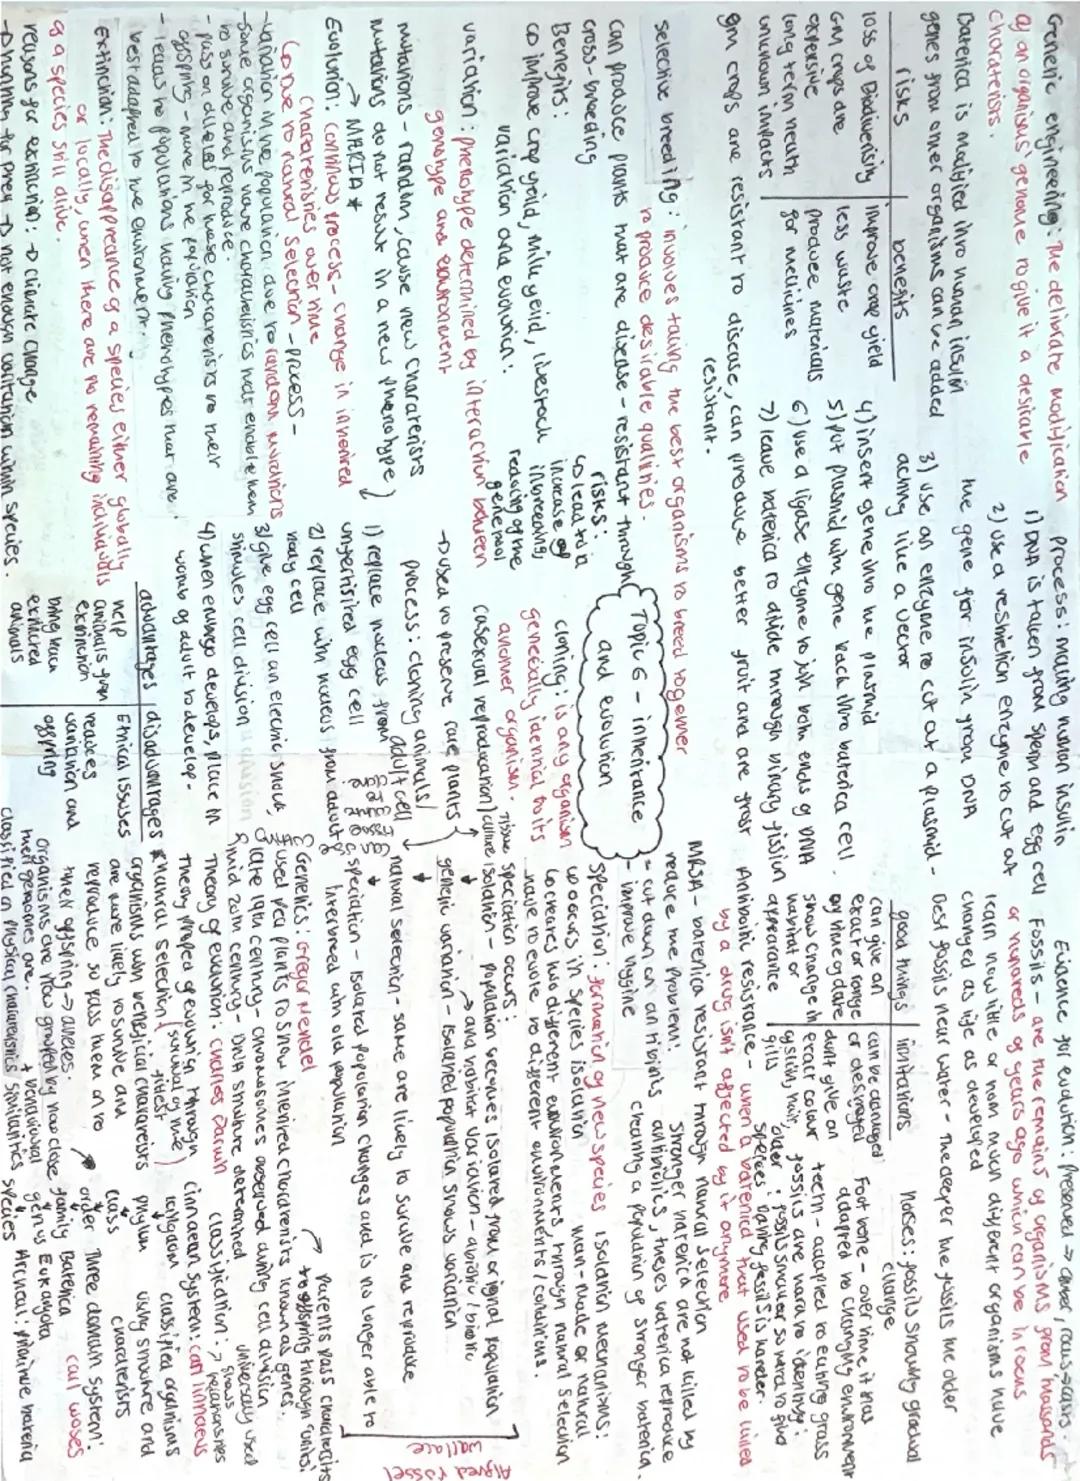 Genetic engineering: The delibrate modification
of an organisms' genome to give it a desirable
charateristis.
Baterica is modified into human insulin
genes from other organisms can be added
risks | benefits
loss of Biodiversity | improve crop yield
GM crops are expensive | less waste
long term health | produce materials
unknown impacts | for medicines
gm crops are resistant to disease, can produce better fruit and are frost
resistant.
process: making human insulin
1) DNA is taken from sperm and egg cell
2) use a restriction enzyme to cut out
the gene for insulin from DNA
3) use an enzyme to cut out a plasmid -
acting like a vector
4) insert gene into the plasmid
5) put plasmid with gene back into baterica cell.
6) use a ligase enzyme to join both ends of DNA
7) leave baterica to divide through binary fission
selective breeding: involves taking the best organisms to breed together
to produce desirable qualities.
can produce plants that are disease-resistant through
cross-breeding
Benefits:
improve crop yeild, milk yeild, livestock
risks:
lead to a
increase of
inbreeding,
reducing of the
gene pool
Topic 6 - inheritance
and evolution
variation and evolution:
variation: phenotype determined by interaction between
genotype and environment
mutations - random, cause new charateristis
mutations do not result in a new phenotype
→ MERIA *
Evolution: continous process - change in inherited
charateristics over time
Due to natural selection - process -
- variation in the population due to random mutations
- some organisms have charateristics that enable them
to survive and reproduce.
- pass on alleles for these charateristis to their
offspring - more in the population
- leads to populations having phenotypes that are
best adapted to the environment.
Extinction: The disapprearance of a species either globally
or locally, when there are no remaining individuals
of a species still alive.
reasons for extinction: → climate change
→ hunting for prey → not enough variation within species.
cloning: is any organism
genetically identical to its
another organism.
(asexual reproduction)
tissue culture
→ used to preserve rare plants
process: cloning animals
1) replace nucleus from
unfertilised egg cell
2) replace with nucleus from adult
body cell
3) give egg cell an electric shock,
4) when embryo develops, place in
womb of adult to develop.
advantages | disadvantages
help animals from extinction | Ethical issues
bring back extincted animals | reduces variation and
Evidence for evolution:
Fossils - are the remains of organisms from thousands
or hundreds of years ago which can be in rocks
learn how little or how much different organisms have
changed as life as developed
Best fossils near water - The deeper the fossils the older
good things | limitations
can give an exact or range | can be damaged or destroyed
show change in habitat or apprearance | dont give an exact colour
Horses: fossils showing gradual
change
Foot bone - over time it has
adapted to changing environment
teeth - adapted to eating grass
fossils are hard to identify:
older fossils smaller so hard to find
Antibiotic resistance - when a baterica that used to be killed
by a drug isn't affected by it anymore
MRSA - baterica resistant through natural selection
reduce the problem:
- cut down on antibiotis
- improve hygine
Stronger baterica are not killed by
antibiotics, theses baterica reproduce
creating a population of stronger baterica.
Speciation: formation of new species
occurs in species isolation
creates two different environments, through natural selection
have to evolve to different environments/conditions.
isolation mechanisms:
man-made or natural
speciation occurs:
isolation - population becomes isolated from original population
and habitat variation - abiotic / biotic
genetic variation - isolated population shows variation
natural selection - some are likely to survive and reproduce
speciation - isolated population changes and is no longer able to
interbreed with old population
Alfred russel
wallace
Genetics: Gregor Mendel
used pea plants to show inherited charateristis known as genes.
→ parents pass charateristis
to offspring through 'units'
late 19th century - chromosomes observed during cell division
mid 20th century - DNA structure determined
Theory of evolution: charles Darwin
theory proposed of evolution through
natural selection
organisms with benefical charateristis
are more likely to survive and
reproduce so pass them on to
their offspring → alleles.
organisms are now grouped by how close
their genomes are.
classified on physical charateristics similarities
classification: → shows relationships
Linnaean system: carl linnaeus
classified organisms
using structure and
charateristis
kingdom
phylum
class
order
family
genus
species
Three domain system:
carl woses
Baterica
Eukaryota
Archaea: primitive baterica